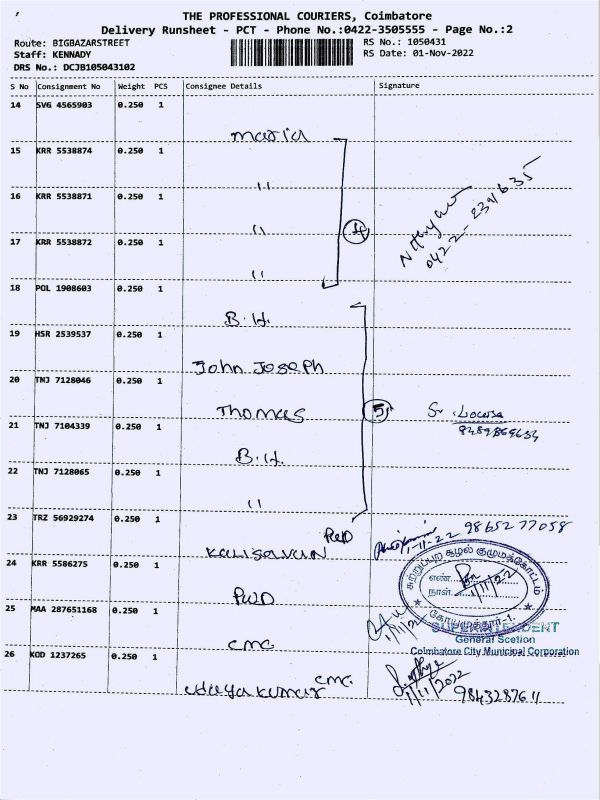 THE PROFESSIONAL COURIERS, Coimbatore
Delivery Runsheet - PCT - Phone No.:0422-3505555 - Page No.:2
Route: BIGBAZARSTREET RS No.: 1050431
Staff: KENNADY RS Date: 01-Nov-2022
DRS No.: DCJB105043102
S No Consignment No Weight PCS Consignee Details Signature
14 SVG 4565903 0.250 1
maria
15 KRR 5538874 0.250 1
"
16 KRR 5538871 0.250 1
"
17 KRR 5538872 0.250 1
"
4
0422-2391635
18 POL 1908603 0.250 1
B.H.
19 HSR 2539537 0.250 1
John Joseph
20 TNJ 7128046 0.250 1
Thomas
5
Sr. Lowsa
21 TNJ 7104339 0.250 1
B.H.
22 TNJ 7128065 0.250 1
"
23 TRZ 56929274 0.250 1
PWD
1-11-22 9865277058
24 KRR 5586275 0.250 1
PWD
சுற்றுப்புற சூழல் குமுமத்கோட்டம்
எண்
நாள் 1/11/22
கோயமுத்தூர்-1.
25 MAA 287651168 0.250 1
CMC
SUPERINTENDENT
General Scetion
Coimbatore City Municipal Corporation
26 KOD 1237265 0.250 1
udayakumar CMC.
1/11/2022
9843287611